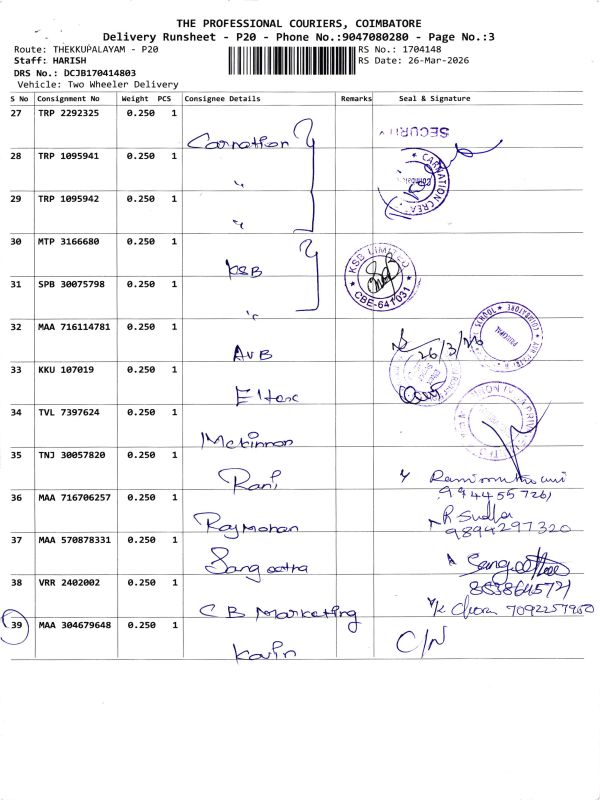 THE PROFESSIONAL COURIERS, COIMBATORE
Delivery Runsheet - P20 - Phone No.:9047080280 - Page No.:3
Route: THEKKUPALAYAM - P20
RS No.: 1704148
Staff: HARISH
RS Date: 26-Mar-2026
DRS No.: DCJB170414803
Vehicle: Two Wheeler Delivery
S No Consignment No Weight PCS Consignee Details Remarks Seal & Signature
27 TRP 2292325 0.250 1 Carnation
SECURITY
28 TRP 1095941 0.250 1 "
29 TRP 1095942 0.250 1 "
30 MTP 3166680 0.250 1 KSB
KSB LIMITED
CBE-641 031
31 SPB 30075798 0.250 1 "
32 MAA 716114781 0.250 1 AVB
26/3/26
SCHOOL
COIMBATORE
PRINCIPAL
33 KKU 107019 0.250 1
34 TVL 7397624 0.250 1 Mckinnon
35 TNJ 30057820 0.250 1 Rani
9944557261
36 MAA 716706257 0.250 1 Rajmohan R Sudha
9894297320
37 MAA 570878331 0.250 1 Sangeetha
8838645721
38 VRR 2402002 0.250 1 CB Marketing 7092257950
39 MAA 304679648 0.250 1 Kavin C/N